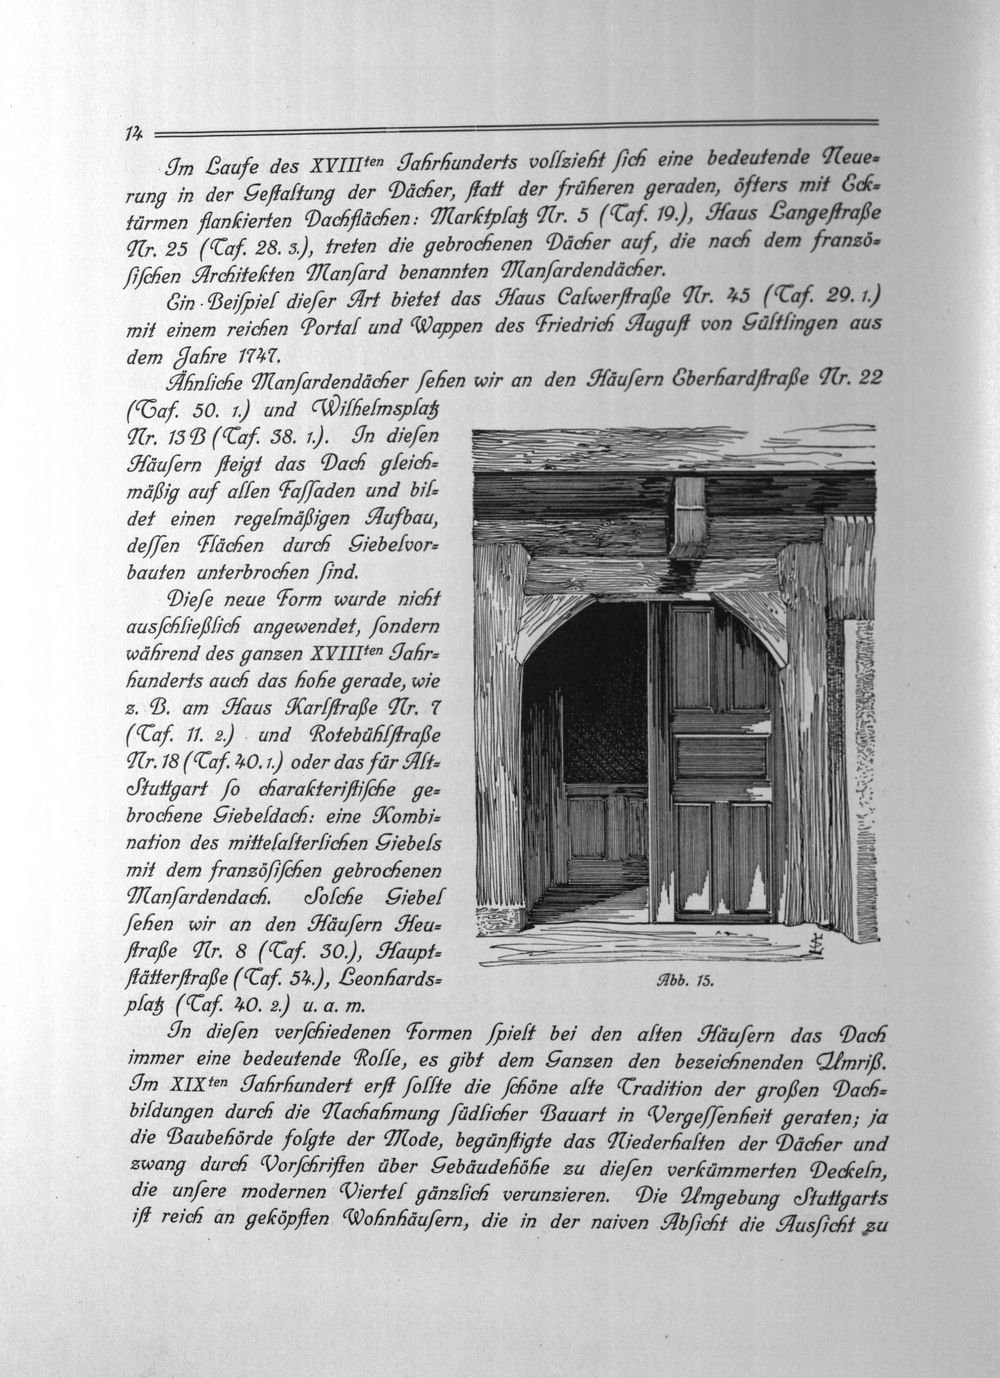 14
Im Laufe des XVIIIten Jahrhunderts vollzieht ſich eine bedeutende Neue=
rung in der Geſtaltung der Dächer, ſtatt der früheren geraden, öfters mit Eck=
türmen flankierten Dachflächen: Marktplatz Nr. 5 (Taf. 19.), Haus Langeſtraße
Nr. 25 (Taf. 28. 3.), treten die gebrochenen Dächer auf, die nach dem franzö=
ſiſchen Architekten Manſard benannten Manſardendächer.
Ein Beiſpiel dieſer Art bietet das Haus Calwerſtraße Nr. 45 (Taf. 29. 1.)
mit einem reichen Portal und Wappen des Friedrich Auguſt von Gültlingen aus
dem Jahre 1747.
Ähnliche Manſardendächer ſehen wir an den Häuſern Eberhardſtraße Nr. 22
(Taf. 50. 1.) und Wilhelmsplatz
Nr. 13 B (Taf. 38. 1.). In dieſen
Häuſern ſteigt das Dach gleich=
mäßig auf allen Faſſaden und bil=
det einen regelmäßigen Aufbau,
deſſen Flächen durch Giebelvor=
bauten unterbrochen ſind.
Dieſe neue Form wurde nicht
ausſchließlich angewendet, ſondern
während des ganzen XVIIIten Jahr=
hunderts auch das hohe gerade, wie
z. B. am Haus Karlſtraße Nr. 7
(Taf. 11. 2.) und Rotebühlſtraße
Nr. 18 (Taf. 40. 1.) oder das für Alt=
Stuttgart ſo charakteriſtiſche ge=
brochene Giebeldach: eine Kombi=
nation des mittelalterlichen Giebels
mit dem franzöſiſchen gebrochenen
Manſardendach. Solche Giebel
ſehen wir an den Häuſern Heu=
ſtraße Nr. 8 (Taf. 30.), Haupt=
ſtätterſtraße (Taf. 54.), Leonhards=
platz (Taf. 40. 2.) u. a. m.
Abb. 15.
In dieſen verſchiedenen Formen ſpielt bei den alten Häuſern das Dach
immer eine bedeutende Rolle, es gibt dem Ganzen den bezeichnenden Umriß.
Im XIXten Jahrhundert erſt ſollte die ſchöne alte Tradition der großen Dach=
bildungen durch die Nachahmung ſüdlicher Bauart in Vergeſſenheit geraten; ja
die Baubehörde folgte der Mode, begünſtigte das Niederhalten der Dächer und
zwang durch Vorſchriften über Gebäudehöhe zu dieſen verkümmerten Deckeln,
die unſere modernen Viertel gänzlich verunzieren. Die Umgebung Stuttgarts
iſt reich an geköpften Wohnhäuſern, die in der naiven Abſicht die Ausſicht zu